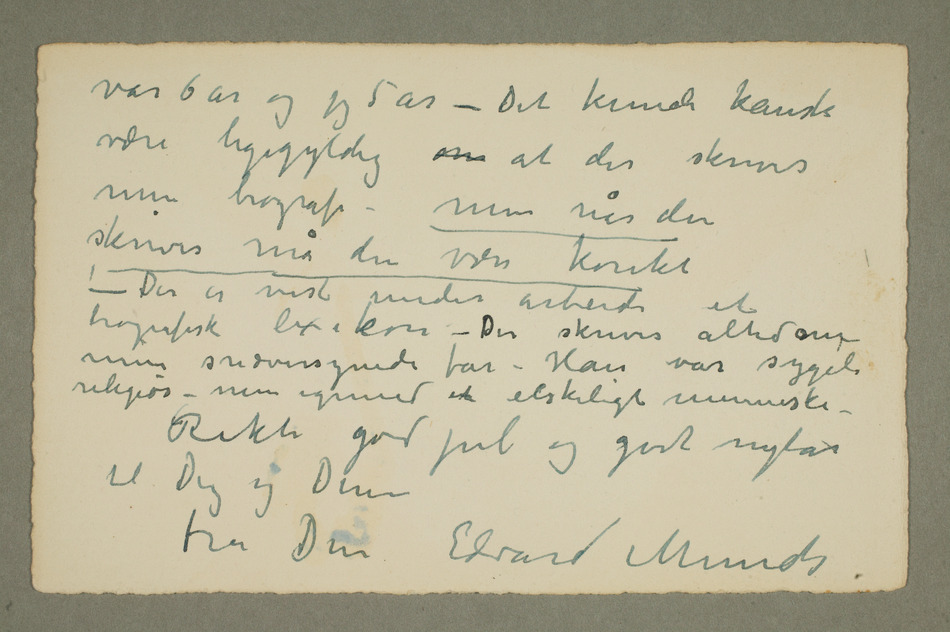 var 6 år og jeg 5 år – Det kunde kanske
være ligegyldig om at der skrives
min biografi – men når den
skrives må den være korekt
! – Der er vist under arbeide et
biografisk lexikon – Der skrives altid om
min snæversynede far – Han var sygeli
religiøs – men egentlig et elskeligt menneske –
Rikti god jul og godt nytår
til Dig og Dine
fra Din Edvard Munch